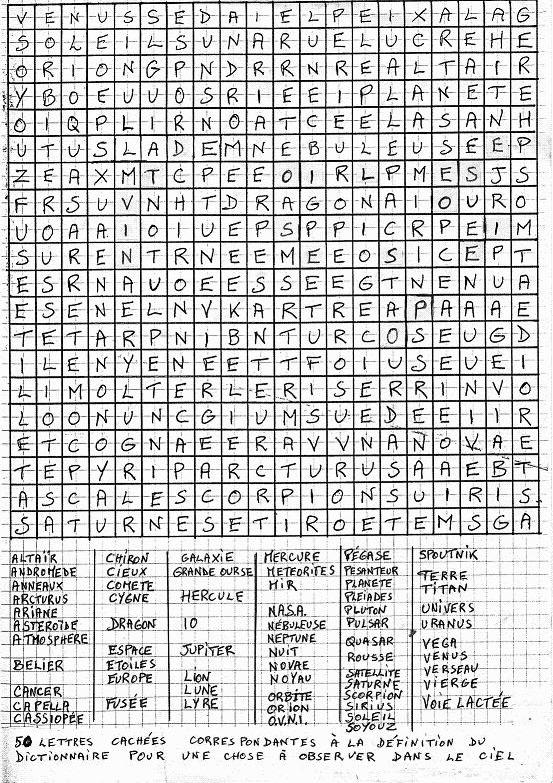 V E N U S S E D A I E L P E I X A L A G
S O L E I L S U N A R U E L U C R E H E
O R I O N G P N D R R N R E A L T A I R
Y B O E U U O S R I E E I P L A N E T E
O I Q P L I R N O A T C E E L A S A N H
U T U S L A D E M N E B U L E U S E E P
Z E A X M T C P E E O I R L P M E S J S
F R S U V N H T D R A G O N A I O U R O
U O A A I O I U E P S P P I C R P E I M
S U R E N T R N E E M E E O S I C E P T
E S R N A U O E E S S E E G T N E N U A
E S E N E L N V K A R T R E A P A A A E
T E T A R P N I B N T U R C O S E U G D
I L E N Y E N E E T T F O I U S E U E I
L I M O L T E R L E R I S E R R I N V O
L O O N U N C G I U M S U E D E E I I R
E T C O G N A E E R A V V N A N O V A E
T E P Y R I P A R C T U R U S A A E B T
A S C A L E S C O R P I O N S U I R I S
S A T U R N E S E T I R O E T E M S G A
ALTAÏR
ANDROMÈDE
ANNEAUX
ARCTURUS
ARIANE
ASTEROÏDE
ATMOSPHÈRE
BELIER
CANCER
CAPELLA
CASSIOPÉE
CHIRON
CIEUX
COMETE
CYGNE
DRAGON
ESPACE
ETOILES
EUROPE
FUSÉE
GALAXIE
GRANDE OURSE
HERCULE
IO
JUPITER
LION
LUNE
LYRE
MERCURE
METEORITES
MIR
N.A.S.A.
NÉBULEUSE
NEPTUNE
NUIT
NOVAE
NOYAU
ORBITE
ORION
O.V.N.I.
PÉGASE
PESANTEUR
PLANETE
PLEIADES
PLUTON
PULSAR
QUASAR
ROUSSE
SATELLITE
SATURNE
SCORPION
SIRIUS
SOLEIL
SOYOUZ
SPOUTNIK
TERRE
TITAN
UNIVERS
URANUS
VEGA
VENUS
VERSEAU
VIERGE
VOIE LACTÉE
50 LETTRES CACHÉES CORRESPONDANTES À LA DÉFINITION DU
DICTIONNAIRE POUR UNE CHOSE À OBSERVER DANS LE CIEL